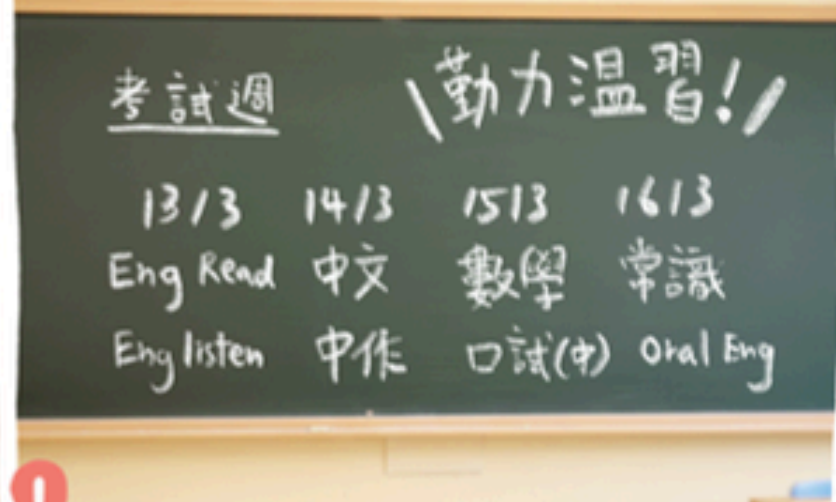 考試週 \勤力温習!/
13/3 14/3 15/3 16/3
Eng Read 中文 數學 常識
Eng listen 中作 口試(中) Oral Eng